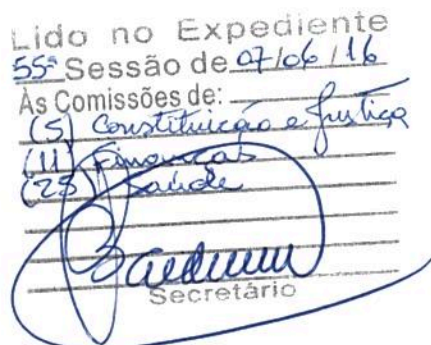 Lido no Expediente
55ª Sessão de 07/06/16
Às Comissões de:
(5) Constituição e Justiça
(11) Finanças
(25) Saúde
Secretário